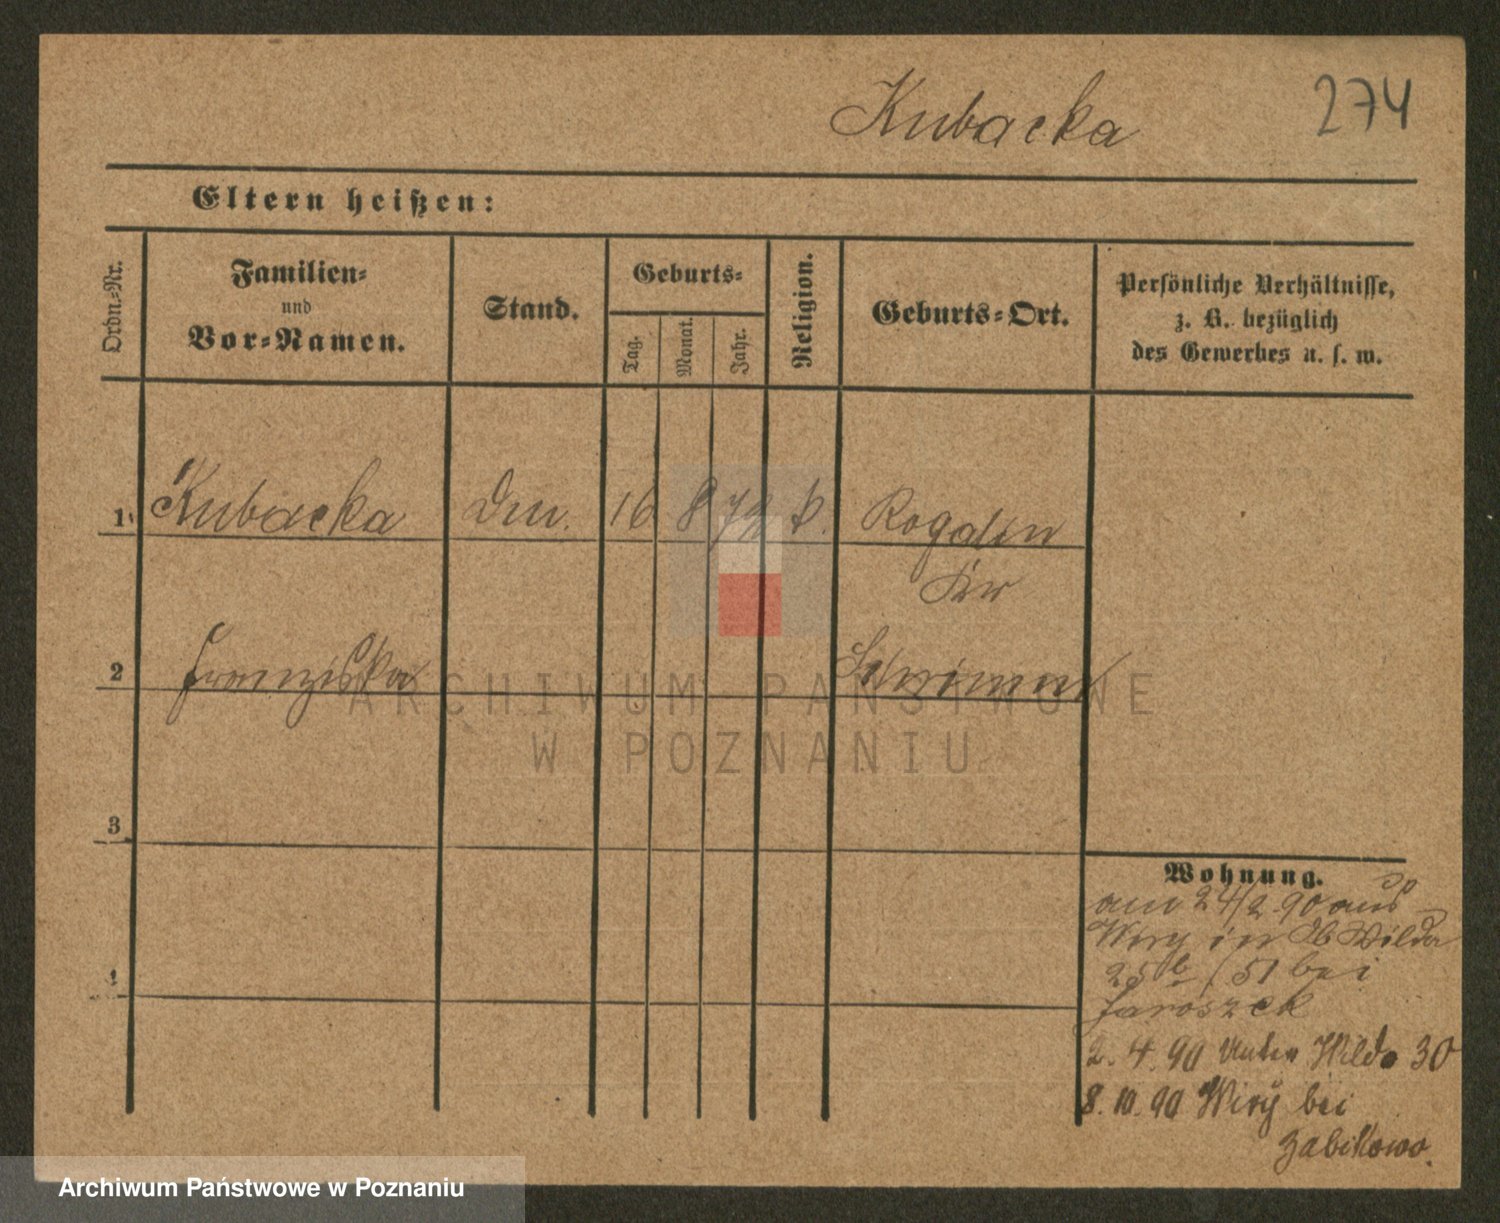 Kubacka 274
Eltern heißen:
Ordn.-Nr.
Familien-
und
Vor-Namen.
Stand.
Geburts-
Tag.
Monat.
Jahr.
Religion.
Geburts-Ort.
Persönliche Verhältnisse,
z. B. bezüglich
des Gewerbes u. s. w.
1 Kubacka 16 8 72 k. Rogalin
Kr
2 Franziska Schrimm
3
4
ARCHIWUM PAŃSTWOWE
W POZNANIU
Wohnung.
am 24/2 90 aus
Wiry in Ob Wilda
25b / 51 bei
Jaroszek
2. 4. 90 Unter Wilda 30
8. 10. 90 Wiry bei
Zabikowo.
Archiwum Państwowe w Poznaniu